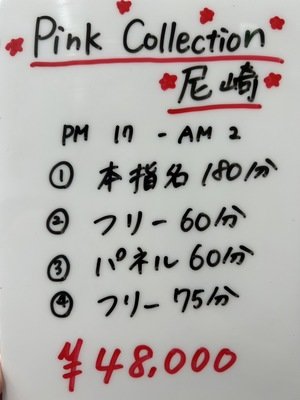 Pink Collection
尼崎
PM 17 - AM 2
① 本指名 180分
② フリー 60分
③ パネル 60分
④ フリー 75分
¥48,000